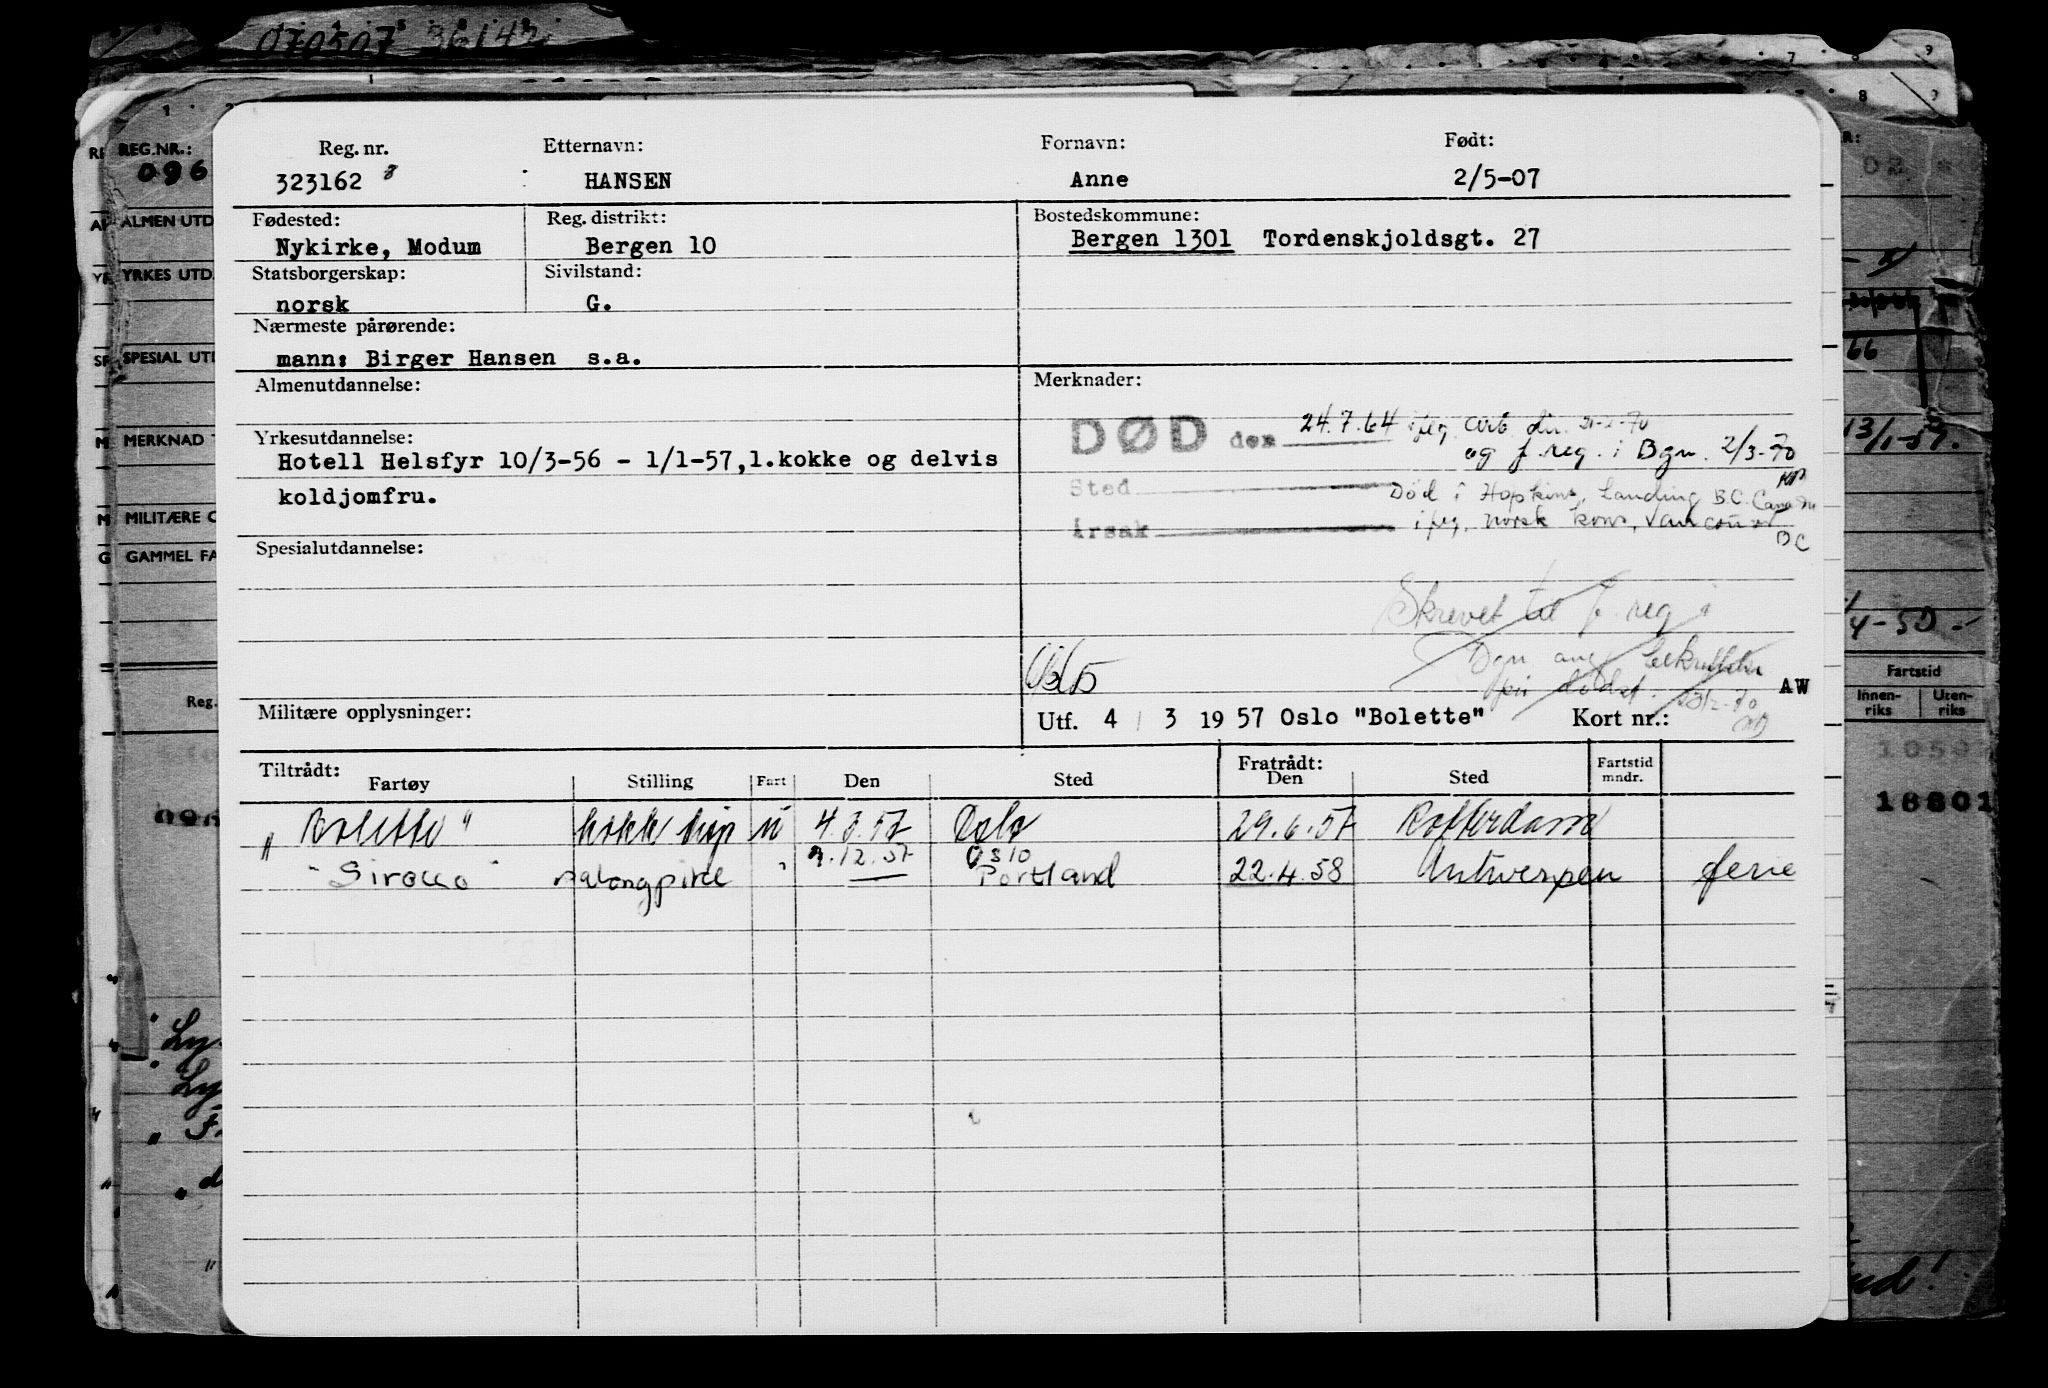 070507 36143
Reg. nr. Etternavn: Fornavn: Født:
323162 8 HANSEN Anne 2/5-07
Fødested: Reg. distrikt: Bostedskommune:
Nykirke, Modum Bergen 10 Bergen 1301 Tordenskjoldsgt. 27
Statsborgerskap: Sivilstand:
norsk G.
Nærmeste pårørende:
mann: Birger Hansen s.a.
Almenutdannelse: Merknader:
DØD den 24.7.64 iføg. 21-2-70
Yrkesutdannelse: og f. reg. i Bgn. 2/3-70
Hotell Helsfyr 10/3-56 - 1/1-57,1.kokke og delvis
koldjomfru.
Sted Død i Hopkins, Landing B.C. Canada
Årsak iføg. norsk kons, Vancouver
BC
Spesialutdannelse:
Skrevet til f. reg i
Bgn ang bekreftelse
på dødsf.
AW
Militære opplysninger: Utf. 4 / 3 19 57 Oslo "Bolette" Kort nr.:
Tiltrådt: Fratrådt: Fartstid
mndr.
Fartøy Stilling Fart Den Sted Den Sted
"Bolette" u 4.3.57 Oslo 29.6.57 Rotterdam
9.12.57 Oslo
"Sirocco" salongpike " Portland 22.4.58 Antwerpen ferie
REG.NR.:
096
ALMEN UTD
YRKES UTD.
SPESIAL UTD
MERKNAD
MILITÆRE
GAMMEL FA
Reg.
66
13/1-59.
4-50
Fartstid
Innen-
riks
Uten-
riks
18801